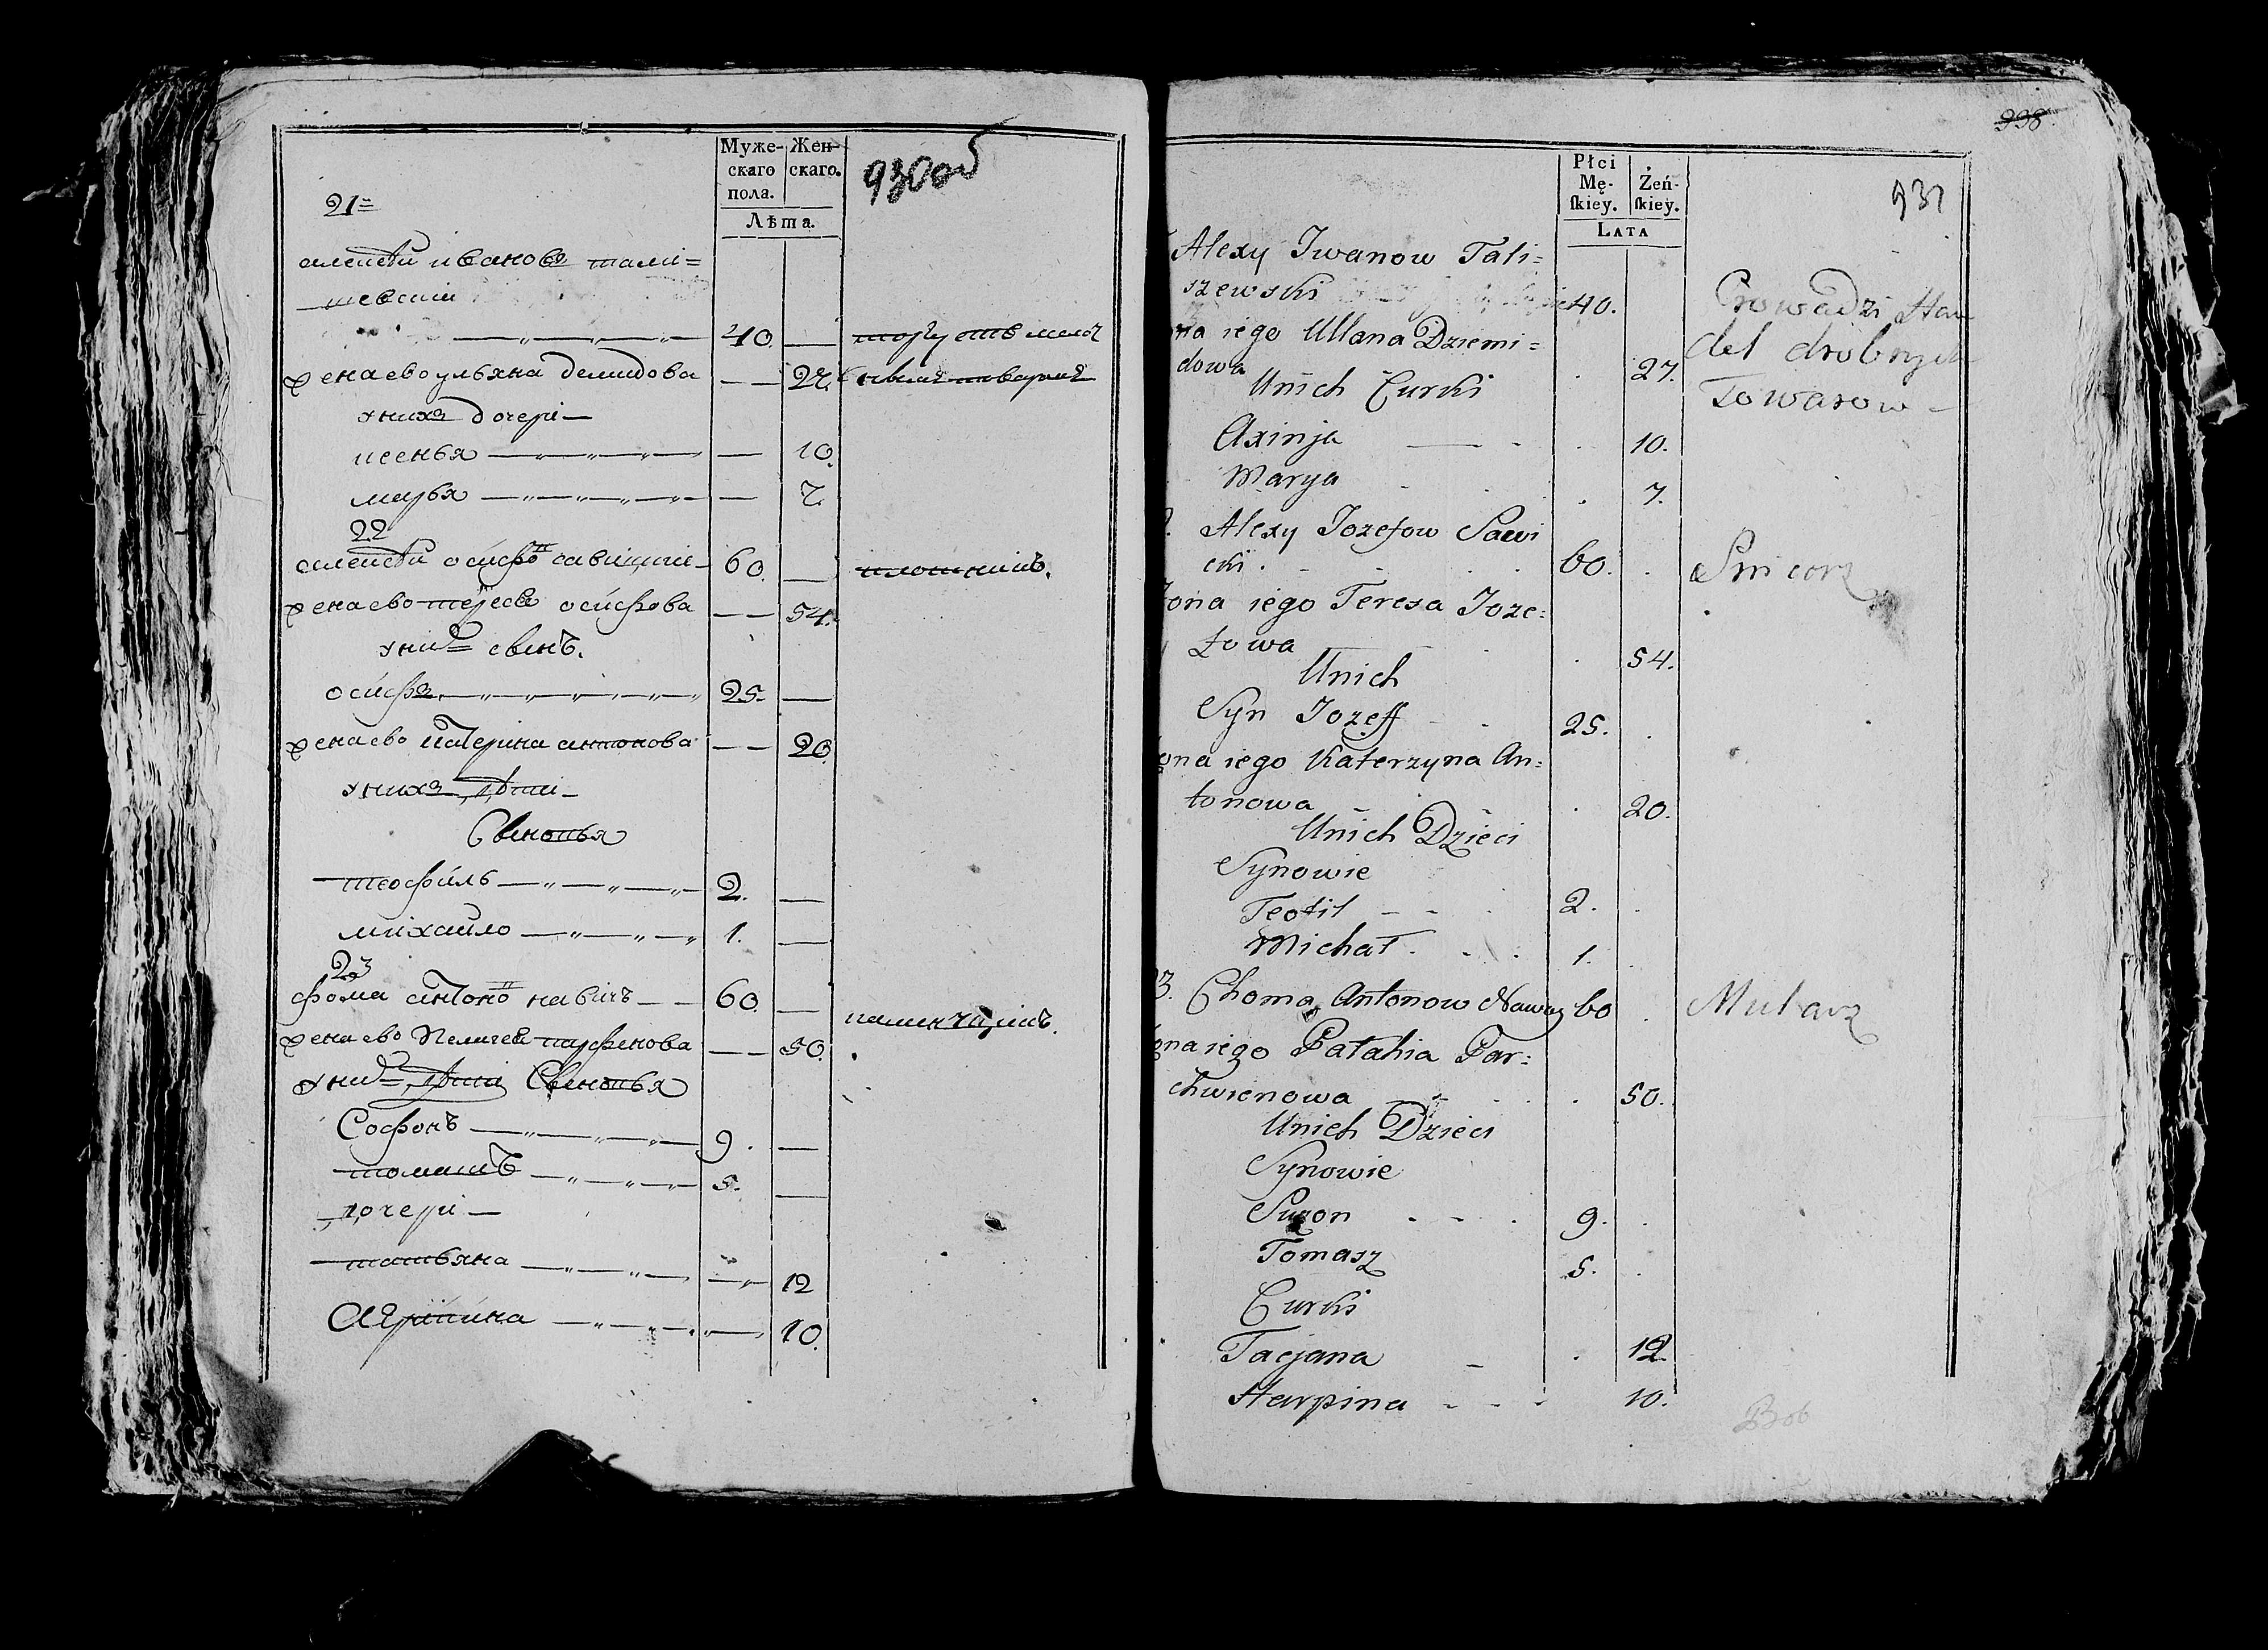 Муже-
скаго
пола.
Жен-
скаго.
Лѣта.
930 об
21
алексѣй ивановъ тали=
шевскій
40.
торгуетъ мелоч
жена ево ульяна демидова 27.
ными товарами
у нихъ дочери
ксенья 10.
марья 7.
22
алексѣй осифо савицкий 60.
плотникъ.
жена ево тереса осифова 54.
у нихъ сынъ.
осифъ 25.
жена ево катерина антонова 20.
у нихъ дѣти
Сыновья
теофиль 2.
михайло 1.
23
фома антоно навичъ 60.
каменчщикъ.
жена ево пелагея парфенова 50.
у нихъ дѣти Сыновья
Софонъ 9.
томашъ 5.
дочери
татьяна 12
Агрипина 10.
998.
Płci
Mę-
skiey.
Żeń-
skiey.
LATA
931
Alexy Iwanow Tali=
szewski 40.
Prowadzi Han
del drobnych
Towarow
na iego Ullana Dziemi=
dowa 27.
Unich Curki
Axinja 10.
Marya 7.
Alexy Iozefow Sawi
cki. 60.
Snicerz
żona iego Teresa Ioze=
fowa 54.
Unich
Syn Iozeff 25.
żona iego Katerzyna An=
tonowa 20.
Unich Dzieci
Synowie
Teofil 2.
Michał. 1.
3. Choma Antonow Nawicz 60
Mularz
żona iego Pałahia Par=
chwienowa 50.
Unich Dzieci
Synowie
Suzon 9.
Tomasz 5.
Curki
Tacjana 12.
Harpina 10.